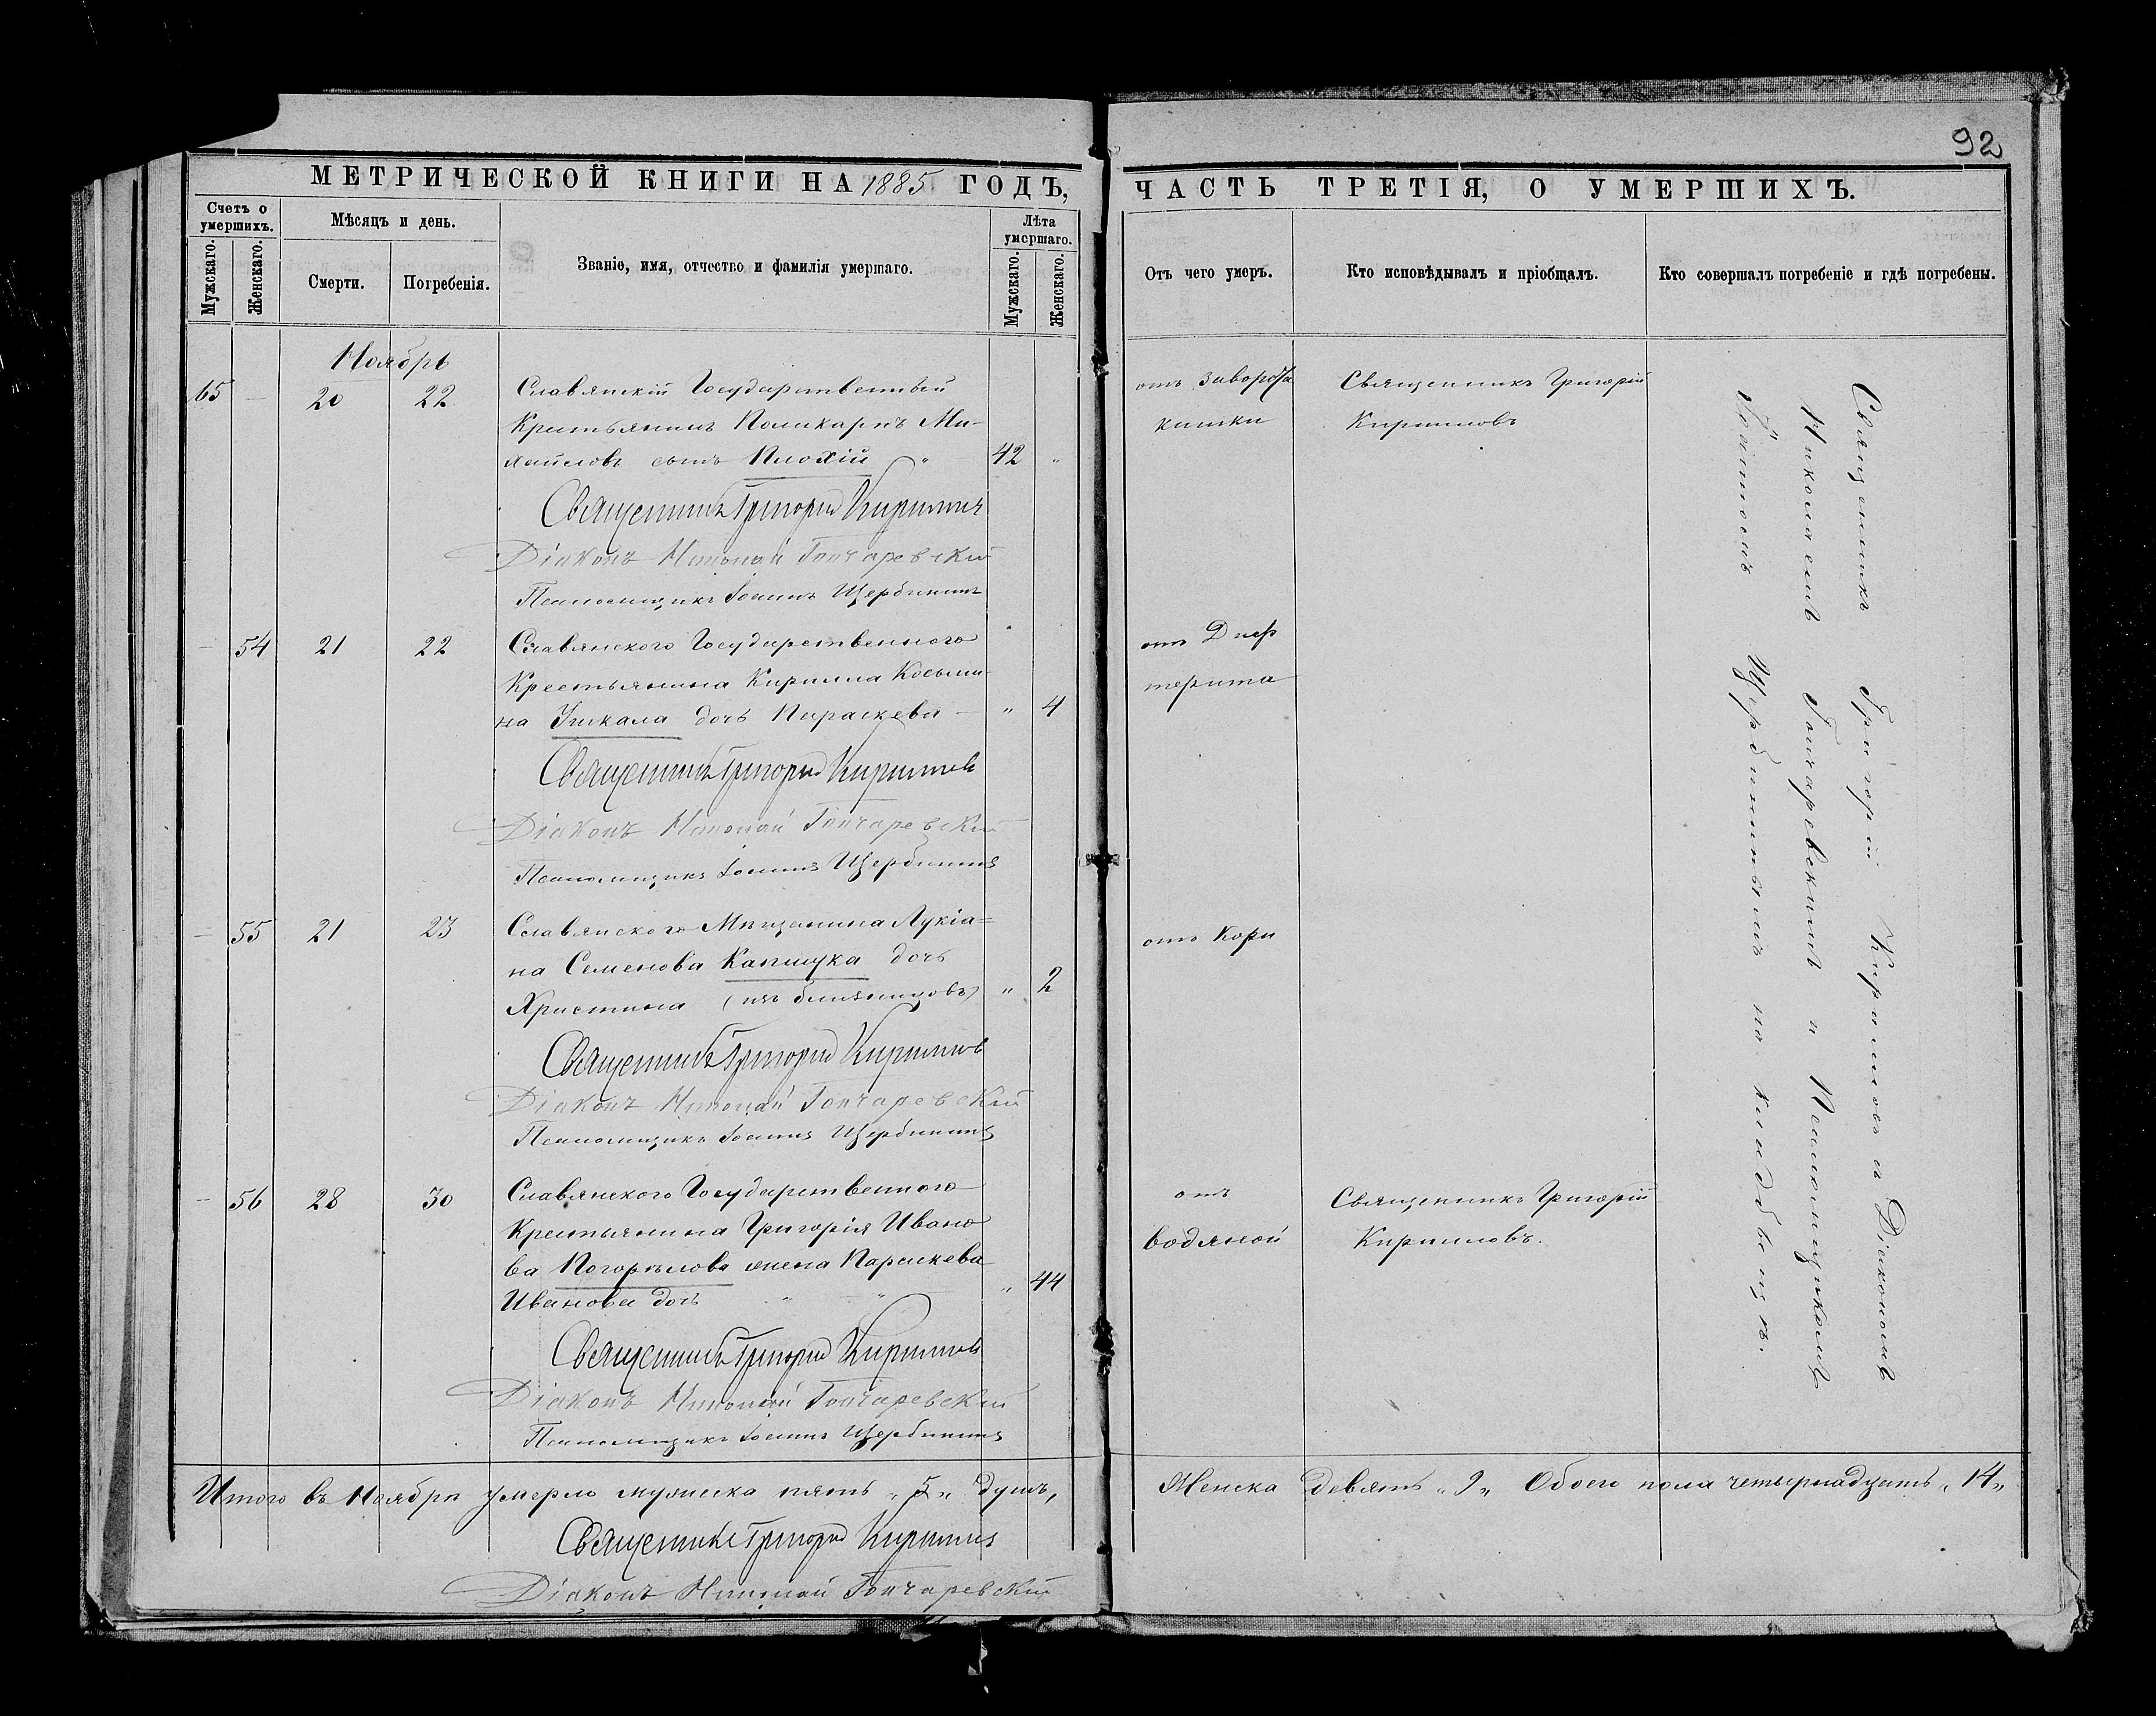 92
МЕТРИЧЕСКОЙ КНИГИ НА 1885 ГОДЪ,
ЧАСТЬ ТРЕТІЯ, О УМЕРШИХЪ.
Счетъ о умершихъ.
Мужскаго.
Женскаго.
Мѣсяцъ и день.
Смерти.
Погребенія.
Званіе, имя, отчество и фамилія умершаго.
Лѣта умершаго.
Мужскаго.
Женскаго.
Отъ чего умеръ.
Кто исповѣдывалъ и пріобщалъ.
Кто совершалъ погребеніе и гдѣ погребены.
Ноябрь
65 — 20 22 Славянскій Государственный
Крестьянинъ Поликарпъ Ми-
хайловъ сынъ Плохій „ 42 „
отъ заворота
кишки
Священникъ Григорій
Кирилловъ
Священникъ Григорій Кирилловъ
Діаконъ Николай Гончаревскій
Псаломщикъ Іоаннъ Щербининъ
— 54 21 22 Славянского Государственного
Крестьянина Кирилла Косьми-
на Учкала дочь Параскева — „ 4
отъ Диф
терита
Священникъ Григорій Кирилловъ
Діаконъ Николай Гончаревскій
Псаломщикъ Іоаннъ Щербининъ
— 55 21 23 Славянского Мѣщанина Лукіа=
на Семенова Капшука дочь
Христина (изъ близнецовъ) „ 2
отъ Кори
Священникъ Григорій Кирилловъ
Діаконъ Николай Гончаревскій
Псаломщикъ Іоаннъ Щербининъ
— 56 28 30 Славянского Государственного
Крестьянина Григорія Ивано
ва Погорѣлова жена Параскева
Иванова дочь „ „ „ 44
отъ
водяной
Священникъ Григорій
Кирилловъ.
Священникъ Григорій Кирилловъ
Діаконъ Николай Гончаревскій
Псаломщикъ Іоаннъ Щербининъ
Священникъ Григорій Кирилловъ съ Діакономъ
Николаемъ Гончаревскимъ и Псаломщикомъ
Іоанномъ Щербининымъ на кладбищѣ.
Итого въ Ноябрѣ умерло мужеска пять „5„ душъ,
Женска девять „9„ Обоего пола четырнадцать „14„
Священникъ Григорій Кирилловъ
Діаконъ Николай Гончаревскій